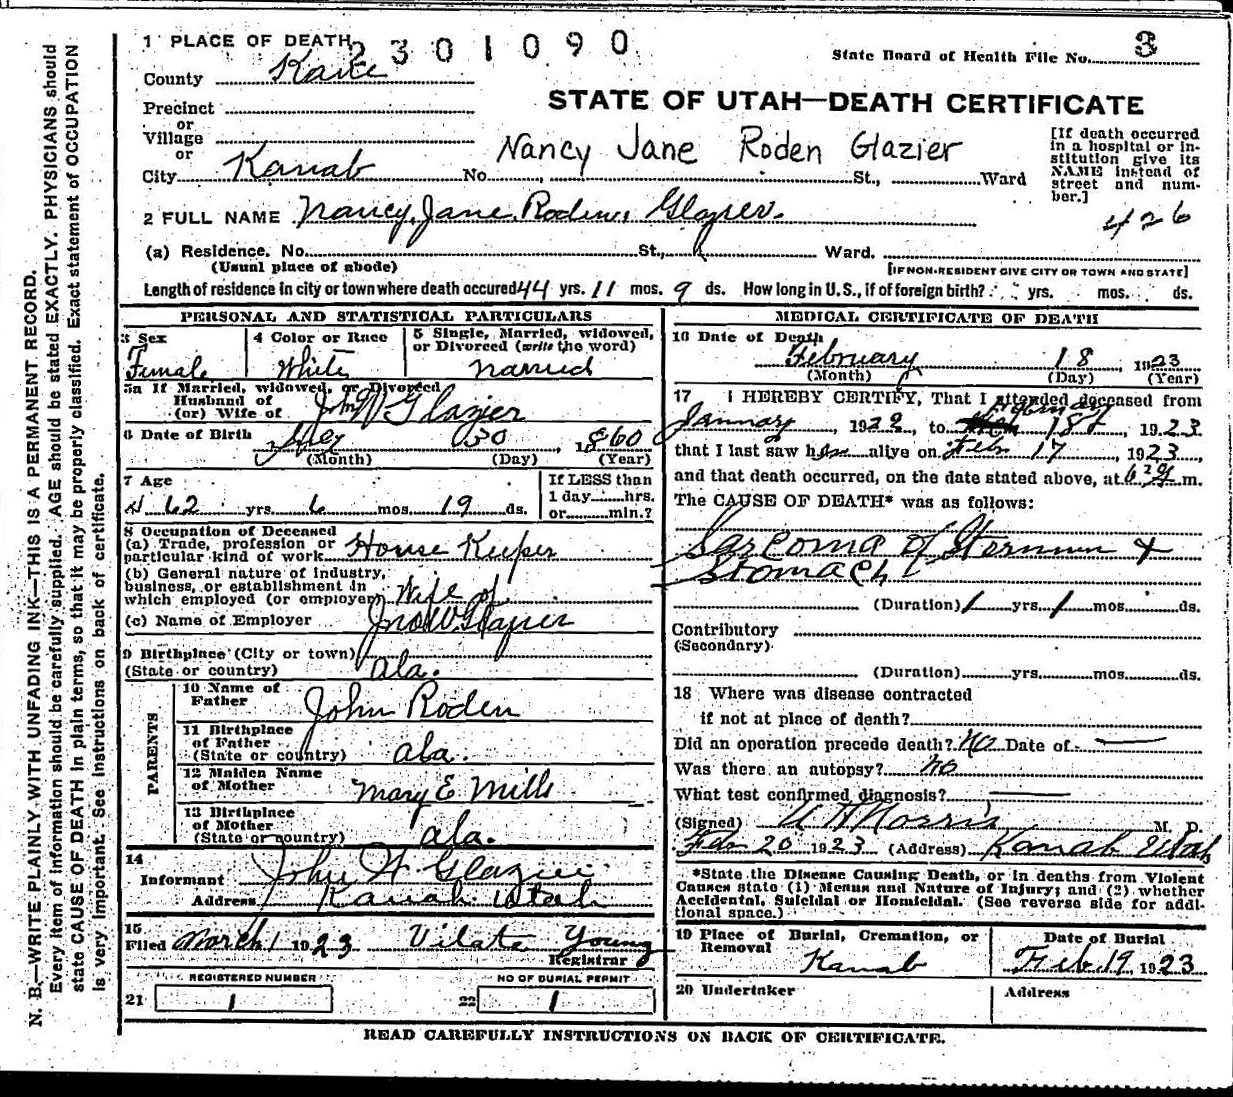 1 PLACE OF DEATH 2301090
State Board of Health File No. 3
County Kane
STATE OF UTAH—DEATH CERTIFICATE
Precinct
or
Village
or
City Kanab No. St., Ward
Nancy Jane Roden Glazier
[If death occurred
in a hospital or in-
stitution give its
NAME instead of
street and num-
ber.]
426
2 FULL NAME Nancy Jane Roden Glazier
(a) Residence. No. St., Ward.
(Usual place of abode) [IF NON-RESIDENT GIVE CITY OR TOWN AND STATE]
Length of residence in city or town where death occured 44 yrs. 11 mos. 9 ds. How long in U.S., if of foreign birth? yrs. mos. ds.
PERSONAL AND STATISTICAL PARTICULARS
3 Sex
Female
4 Color or Race
White
5 Single, Married, widowed,
or Divorced (write the word)
married
5a If Married, widowed, or Divorced
Husband of
(or) Wife of John W Glazier
6 Date of Birth July 30, 1860
(Month) (Day) (Year)
7 Age
62 yrs. 6 mos. 19 ds.
If LESS than
1 day hrs.
or min.?
8 Occupation of Deceased
(a) Trade, profession or
particular kind of work House Keeper
(b) General nature of industry,
business, or establishment in
which employed (or employer) Wife of
(c) Name of Employer Jno W Glazier
9 Birthplace (City or town)
(State or country) Ala.
PARENTS
10 Name of
Father John Roden
11 Birthplace
of Father
(State or country) Ala.
12 Maiden Name
of Mother Mary E Mills
13 Birthplace
of Mother
(State or country) Ala.
14
Informant John W Glazier
Address Kanab Utah
15
Filed March 1 1923 Vilate Young
Registrar
REGISTERED NUMBER
21 1
NO OF BURIAL PERMIT
22 1
MEDICAL CERTIFICATE OF DEATH
16 Date of Death
February 18, 1923
(Month) (Day) (Year)
17 I HEREBY CERTIFY, That I attended deceased from
January, 1922, to February 18, 1923
that I last saw her alive on Feb 17, 1923,
and that death occurred, on the date stated above, at m.
The CAUSE OF DEATH* was as follows:
Sarcoma of Sternum &
Stomach
(Duration) 1 yrs. 1 mos. ds.
Contributory
(Secondary)
(Duration) yrs. mos. ds.
18 Where was disease contracted
if not at place of death?
Did an operation precede death? No Date of —
Was there an autopsy? no
What test confirmed diagnosis? —
(Signed) Norris M. D.
Feb 20 1923 (Address) Kanab Utah
*State the Disease Causing Death, or in deaths from Violent
Causes state (1) Means and Nature of Injury; and (2) whether
Accidental, Suicidal or Homicidal. (See reverse side for addi-
tional space.)
19 Place of Burial, Cremation, or
Removal Kanab
Date of Burial
Feb 19, 1923
20 Undertaker
Address
READ CAREFULLY INSTRUCTIONS ON BACK OF CERTIFICATE.
N. B.—WRITE PLAINLY WITH UNFADING INK—THIS IS A PERMANENT RECORD.
Every item of information should be carefully supplied. AGE should be stated EXACTLY. PHYSICIANS should
state CAUSE OF DEATH in plain terms, so that it may be properly classified. Exact statement of OCCUPATION
is very important. See instructions on back of certificate.